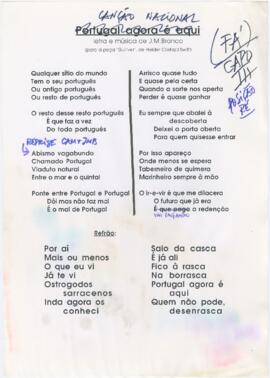 CANÇÃO NACIONAL
Portugal agora é aqui
letra e música de J.M.Branco
(para a peça "Gulliver", de Helder Costa/Swift)
(FÁ)
CAPO
III
POSIÇÃO
RÉ
Qualquer sítio do mundo
Tem o seu português
Ou antigo português
Ou resto de português
O resto desse resto português
É que faz a vez
Do todo português
REPRISE GAM+JMB
Abismo vagabundo
Chamado Portugal
Viaduto natural
Entre o mar e o quintal
Ponte entre Portugal e Portugal
Dói mas não faz mal
É o mal de Portugal
Arrisca quase tudo
E quase pela certa
Quando a sorte nos aperta
Perder é quase ganhar
Eu sempre que abalei à
descoberta
Deixei a porta aberta
Para quem quisesse entrar
Por isso apareço
Onde menos se espera
Taberneiro de quimera
Marinheiro sempre à mão
O ir-e-vir é que me dilacera
O futuro que já era
É que pago a redenção
VAI PAGANDO
Refrão:
Por aí
Mais ou menos
O que eu vi
Já te vi
Ostrogodos
sarracenos
Inda agora os
conheci
Saio da casca
E já ali
Fico à rasca
Na borrasca
Portugal agora é
aqui
Quem não pode,
desenrasca